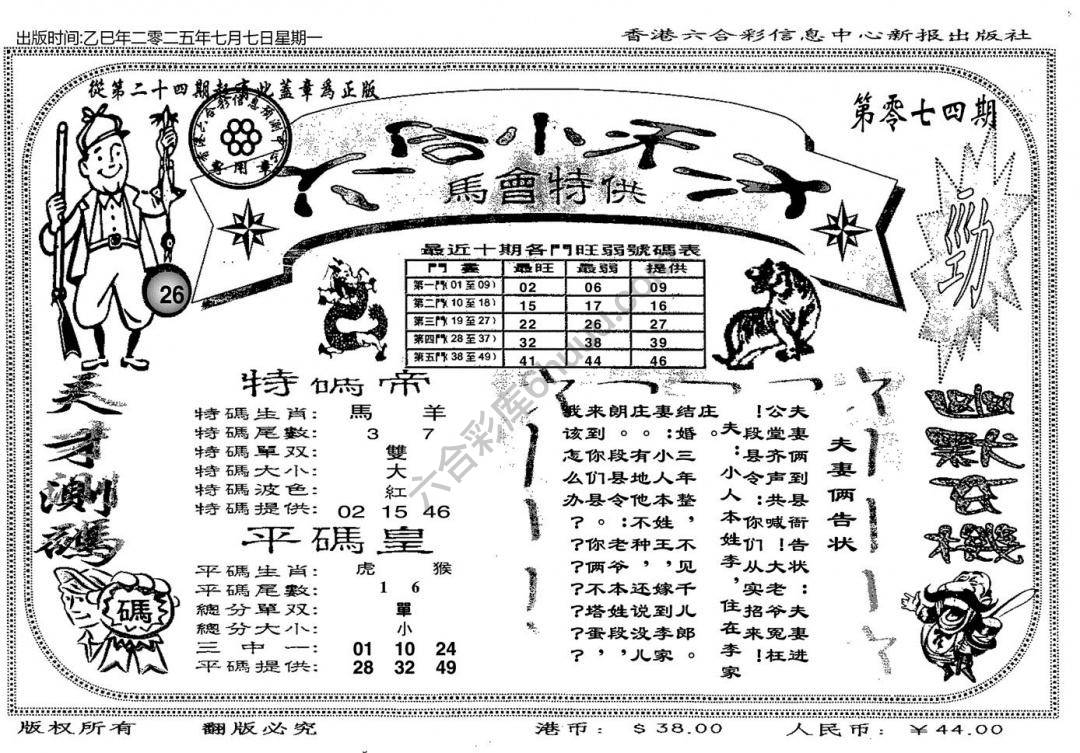 出版时间:乙巳年二零二五年七月七日星期一
香港六合彩信息中心新报出版社
從第二十四期起有此蓋章爲正版
專用章
第零七四期
馬會特供
勁
26
最近十期各門旺弱號碼表
門畫 最旺 最弱 提供
第一門(01至09) 02 06 09
第二門(10至18) 15 17 16
第三門(19至27) 22 26 27
第四門(28至37) 32 38 39
第五門(38至49) 41 44 46
天才測碼
特碼帝
特碼生肖: 馬 羊
特碼尾數: 3 7
特碼單双: 雙
特碼大小: 大
特碼波色: 紅
特碼提供: 02 15 46
平碼皇
平碼生肖: 虎 猴
平碼尾數: 1 6
總分單双: 單
總分大小: 小
三中一: 01 10 24
平碼提供: 28 32 49
碼
幽默玄機
夫妻俩告状
夫妻俩到县衙告状：夫妻进
公堂齐声共喊！大老爷冤枉
！段县令：你们从实招来！
夫：小人本姓李，住在李家
庄。
结婚三年整，不见千儿郎。
妻：小人本姓王，嫁到李家
庄。有地他不种，还说没儿
朗。段县令：老爷本姓段，
来到你们县。你俩不塔蛋，
我该怎么办？？？？？？
六合彩库6huuu.com
版权所有 翻版必究 港币: $38.00 人民币: ￥44.00